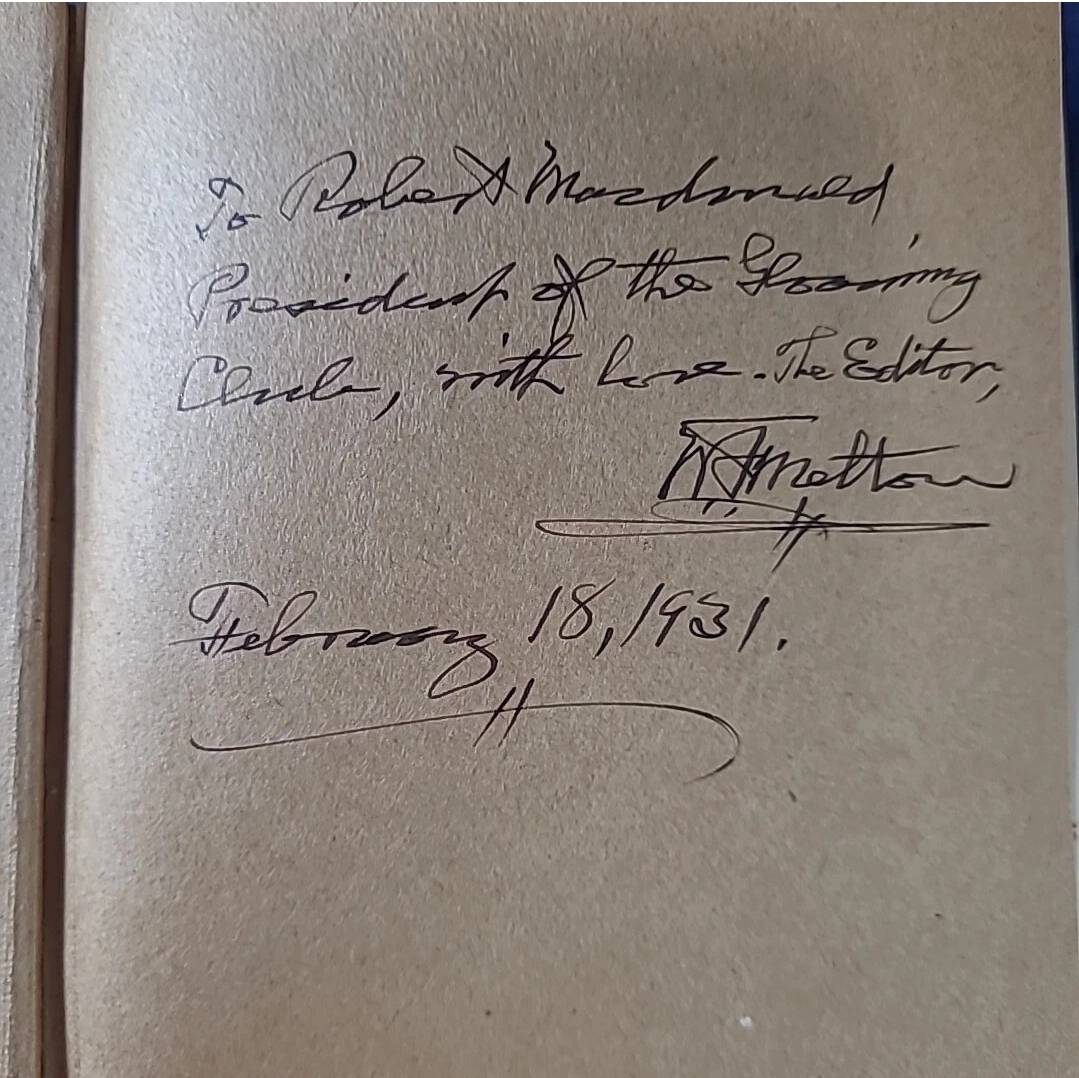 To Robert Macdonald,
President of the Gloaming
Club, with love. The Editor,
W F Melton
February 18, 1931.